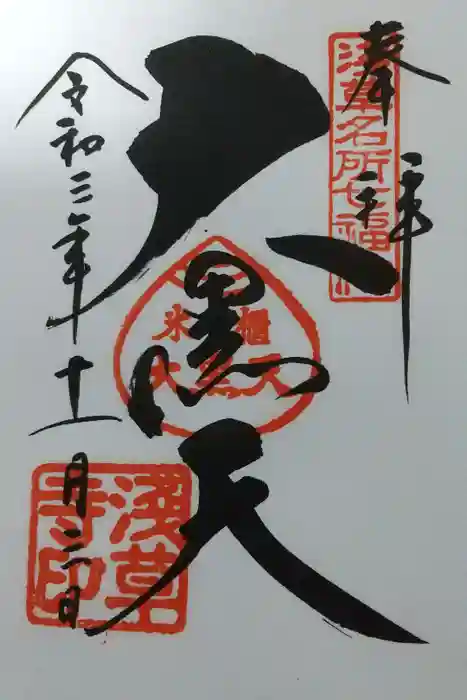 奉拝
浅草名所七福神
大黒天
米櫃
大黒天
令和三年十一月二日
浅草
寺印